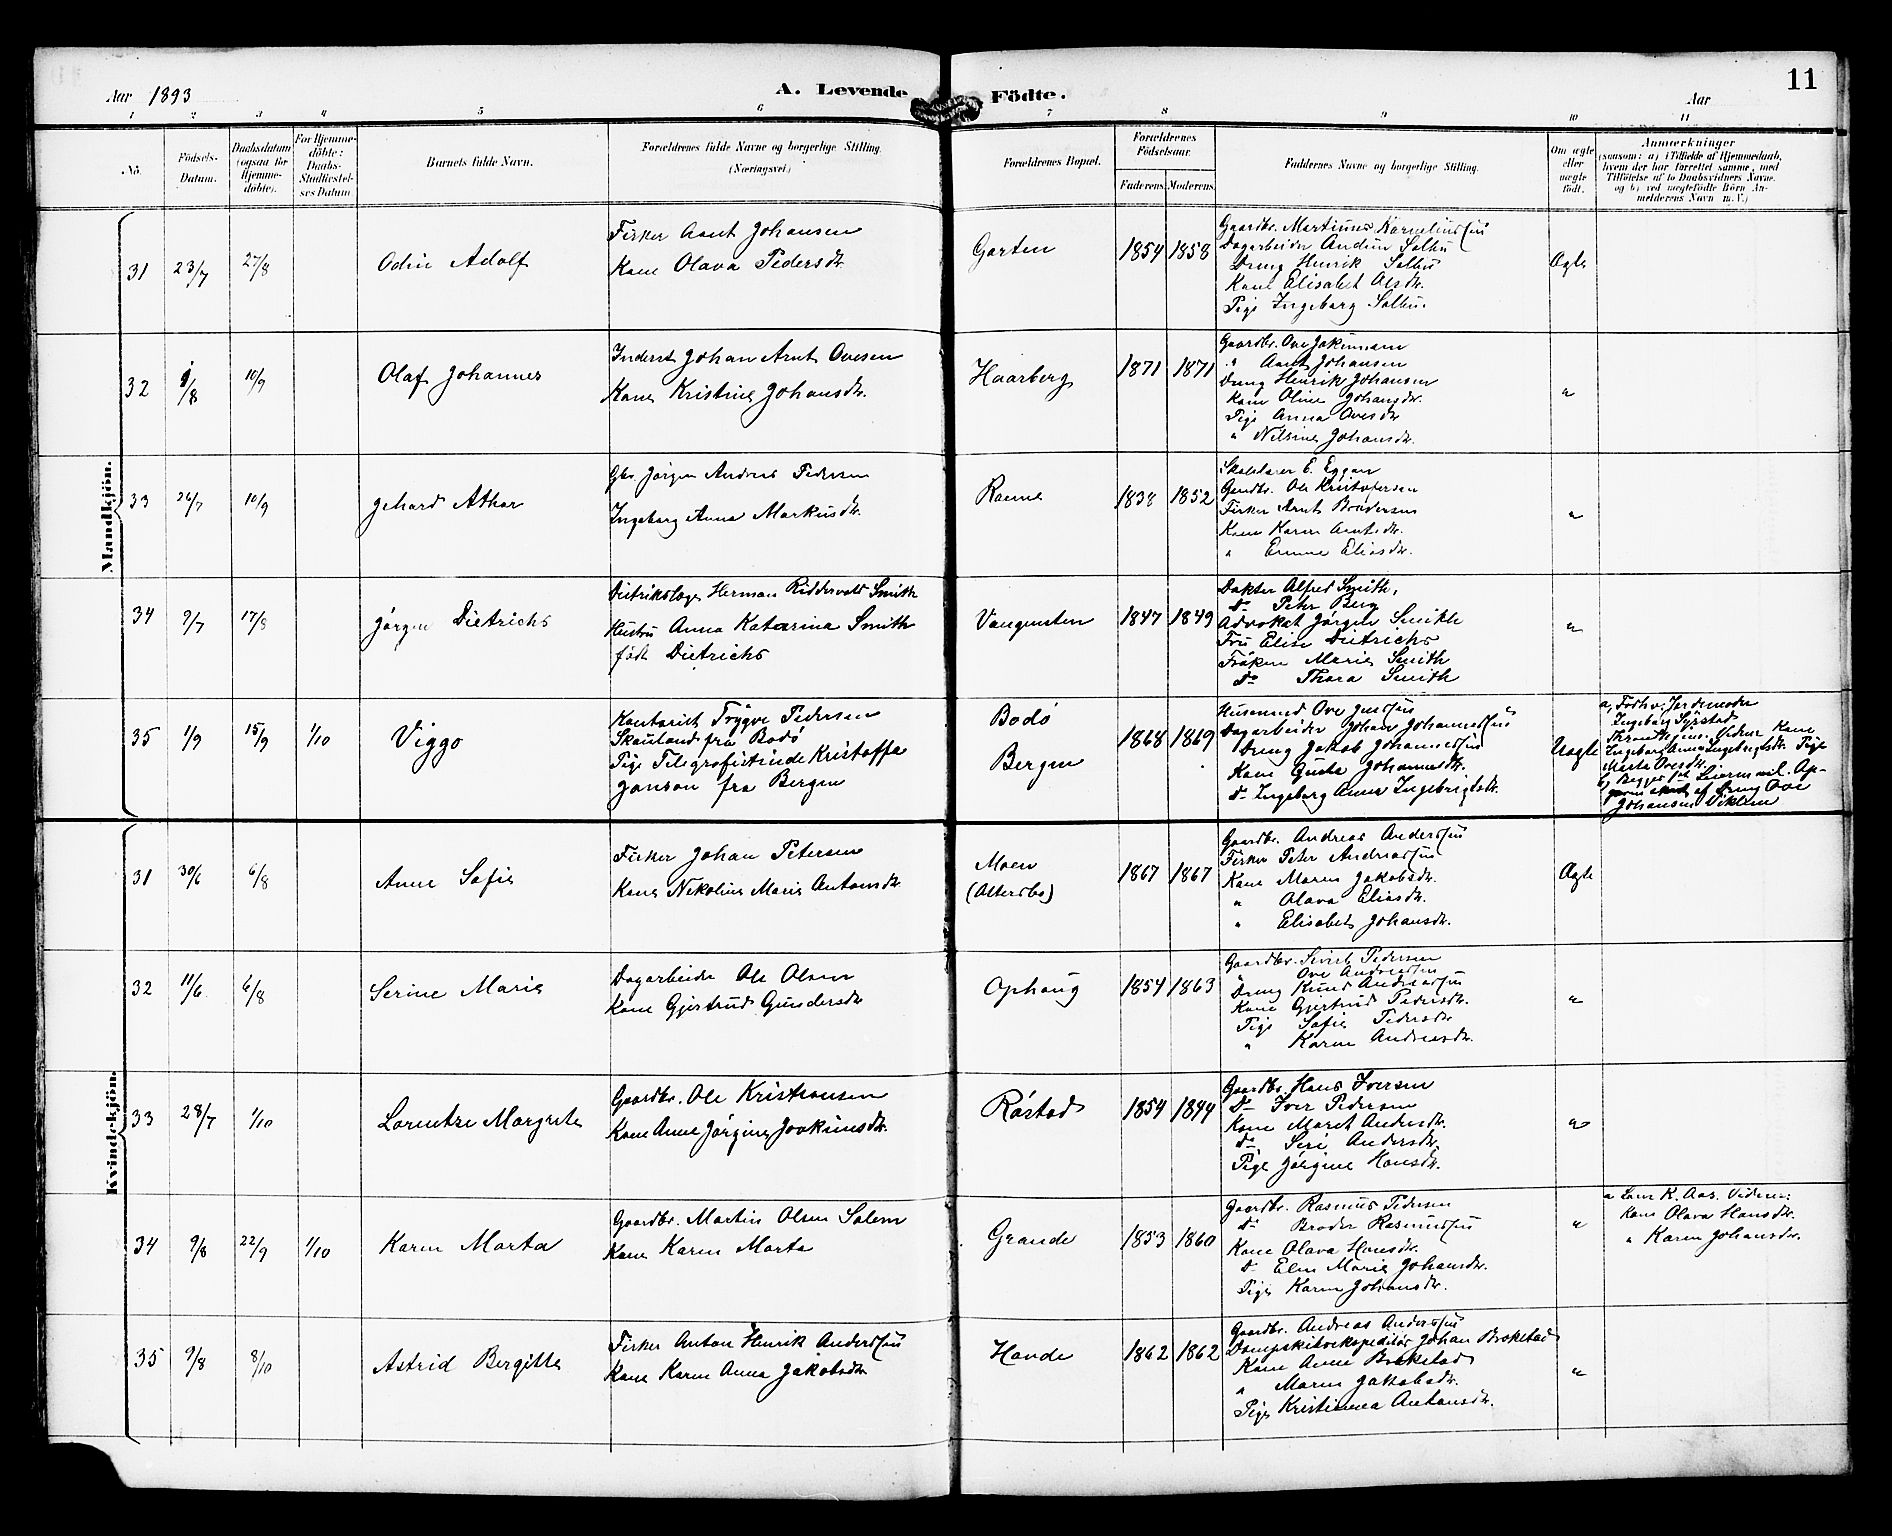 11
Aar 1893
A. Levende Födte.
Aar
1 2 3 4 5 6 7 8 9 10 11
No.
Födsels-Datum.
Daabsdatum (ogsaa for Hjemme-döbte).
For Hjemme-döbte: Daabs-Stadfæstel-ses Datum
Barnets fulde Navn.
Forældrenes fulde Navne og borgerlige Stilling (Næringsvei.)
Forældrenes Bopæl.
Forældrenes Födselsaar.
Faderens. Moderens.
Faddernes Navne og borgerlige Stilling.
Om ægte eller uægte födt.
Anmærkninger
(saasom: a) i Tilfælde af Hjemmedaab,
hvem der har forrettet samme, med
Tilföielse af to Daabsvidners Navne.
og b) ved uægtefödte Börn An-
melderens Navn m. V.)
Mandkjön.
31 23/7 27/8 Odin Adolf
Fisker Arnt Johansen
Kone Olava Pedersdr.
Garten 1854 1858
Gaardbr. Martinus Korneliussen
Dagarbeider Andun Solbu
Dreng Henrik Solbu
Kone Elisabet Olsdr.
Pige Ingeborg Solbu
Ægte
32 9/8 10/9 Olaf Johannes
Inderst Johan Arnt Ovesen
Kone Kristine Johansdr.
Haarberg 1871 1871
Gaardbr. Ove Jokumsen
" Arnt Johansen
Dreng Henrik Johansen
Kone Oline Johansdr.
Pige Anna Ovesdr
" Nilsine Johansdr.
"
33 26/7 10/9 Gehard Athar
Gbr. Jørgen Andreas Pedersen
Ingeborg Anna Markusdr.
Rømme 1838 1852
Skolelærer E. Eggen
Gaardbr. Ole Kristofersen
Fisker Arnt Brodersen
Kone Karen Arntsdr.
" Emma Eliasdr.
"
34 9/7 17/8 Jørgen Dietrichs
Distriktslæge Herman Riddervold Smith
Hustru Anna Katarina Smith
født Dietrichs
Vangensten 1847 1849
Doktor Alfred Smith,
Do Peter Berg
Advokat Jørgen Smith
Fru Elise Dietrichs
Frøken Marie Smith
Do Thora Smith
"
35 1/9 15/9 1/10 Viggo
Kontorist Trygve Pedersen
Skauland fra Bodø
Pige Telegrafistinde Kristoffa
Janson fra Bergen
Bodø
Bergen
1868 1869
Husmand Ove Jensen
Dagarbeider Johan Johannessen
Dreng Jakob Johannessen
Kone Gusta Johannesdr.
do Ingeborg Anna Ingebrigtsdr.
Uægte
a, Født v. Jordemoder
Ingeborg Sÿrstad
Vidner Kone
Ingeborg Anna Ingebrigtsdr. Pige
Marta Ovesdr.
b, Begges 1ste Leiermaal. Op-
af Dreng Ove
Johansen Viklem
Kvindekjön.
31 30/6 6/8 Anne Sofie
Fisker Johan Petersen
Kone Nekoline Marie Antonsdr.
Moen
(Ottersbo)
1867 1867
Gaardbr. Andreas Anderssen
Fisker Peter Andreassen
Kone Maren Jakobsdr.
" Olava Eliasdr.
" Elisabet Johansdr.
Ægte
32 11/6 6/8 Serine Marie
Dagarbeider Ole Olsen
Kone Gjertrud Gundersdr
Ophaug 1854 1863
Gaardbr. Sivert Pedersen
" Ove Andreassen
Dreng Knud Andreassen
Kone Gjertrud Pedersdr.
Pige Sofie Pedersdr
" Karen Andreasdr.
"
33 28/7 1/10 Lorentze Margrete
Gaardbr. Ole Kristiansen
Kone Anne Jørgine Joakimsdr.
Røstad 1854 1844
Gaardbr. Hans Iversen
Do Iver Pedersen
Kone Maret Andersdr.
do Seri Andersdr.
Pige Jørgine Hansdr.
"
34 9/8 22/9 1/10 Karen Marta
Gaardbr. Martin Olsen Solem
Kone Karen Marta
Grande 1853 1860
Gaardbr. Rasmus Pedersen
do Broder Rasmussen
Kone Olava Hansdr.
do Elen Marie Johansdr.
Pige Karen Johansdr.
"
a Lars K. Aas. Vidner:
Kone Olava Hansdr.
" Karen Johansdr.
35 9/8 8/10 Astrid Bergitte
Fisker Anton Henrik Anderssen
Kone Karen Anna Jakobsdr
Hovde 1862 1862
Gaardbr. Andreas Anderssen
Dampskibsexpeditør Johan Brekstad
Kone Anne Brekstad
" Maren Jakobsdr.
Pige Kristianna Antonsdr.
"